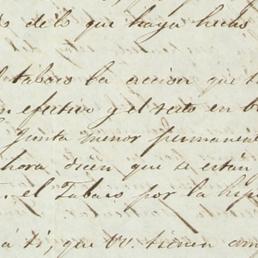 de lo que haya hecho
el tabaco la accion que
en efectivo y el resto en
Junta menor permanent
ahora dicen que se están
el Tabaco por la hip
á ti, que VV. tienen com